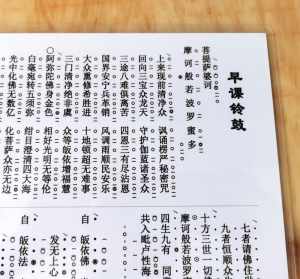 早课铃鼓
菩提萨婆诃
摩诃般若波罗蜜多
上来现前清净众 讽诵楞严秘密咒
回向三宝众龙天 守护伽蓝诸圣众
三途八难俱离苦 四恩三有尽沾恩
国界安宁兵革销 风调雨顺民安乐
大众熏修希胜进 十地顿超无难事
三门清净绝非虞 众等皈依增福慧
○阿弥陀佛身金色 相好光明无等伦
白毫宛转五须弥 绀目澄清四大海
光中化佛无数亿 化菩萨众亦无边
七者请佛住
九者恒顺
十方三世一切
摩诃般若波
四生九有 同
共入毗卢性海
自 皈依佛
发无上心
自 皈依